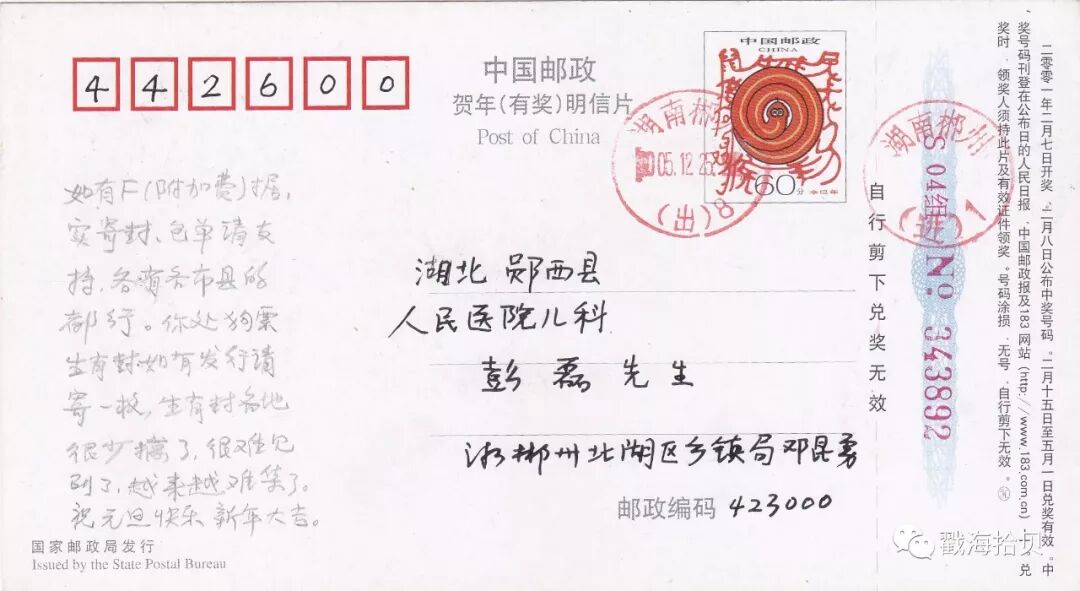 442600
中国邮政
贺年(有奖)明信片
Post of China
中国邮政
CHINA
60分
辛巳年
湖南郴州
05.12.25
(出)8
如有F(附加费)据,
实寄封、包单请支
持,各省各市县的
都行。你处狗票
生肖封如有发行请
寄一枚,生肖封各地
很少搞了,很难见
到了,越来越难集了。
祝元旦快乐 新年大吉。
湖北 郧西县
人民医院儿科
彭磊先生
湖南郴州北湖区乡镇局邓昆勇
邮政编码 423000
国家邮政局发行
Issued by the State Postal Bureau
自行剪下兑奖无效
湖南郴州
S 04组
Nº 343892
二〇〇一年二月七日开奖。二月八日公布中奖号码。二月十五日至五月一日兑奖有效。中
奖号码刊登在公布日的人民日报、中国邮政报及183网站(http://www.183.com.cn)上。兑
奖时,领奖人须持此片及有效证件领奖。号码涂损、无号、自行剪下无效。
戳海拾贝